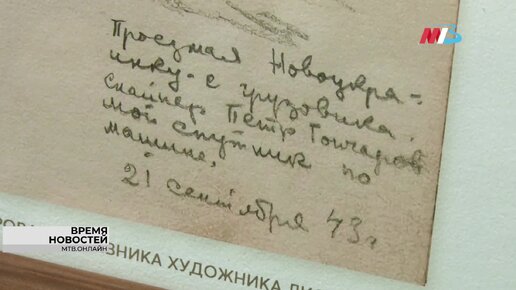 МТВ
Проезжая Новоукра-
инку - с грузовика.
снайпер Петр Гончаров
мой спутник по
машине.
21 сентября 43 г.
ВРЕМЯ
НОВОСТЕЙ
МТВ.ОНЛАЙН
ЗНИКА ХУДОЖНИКА